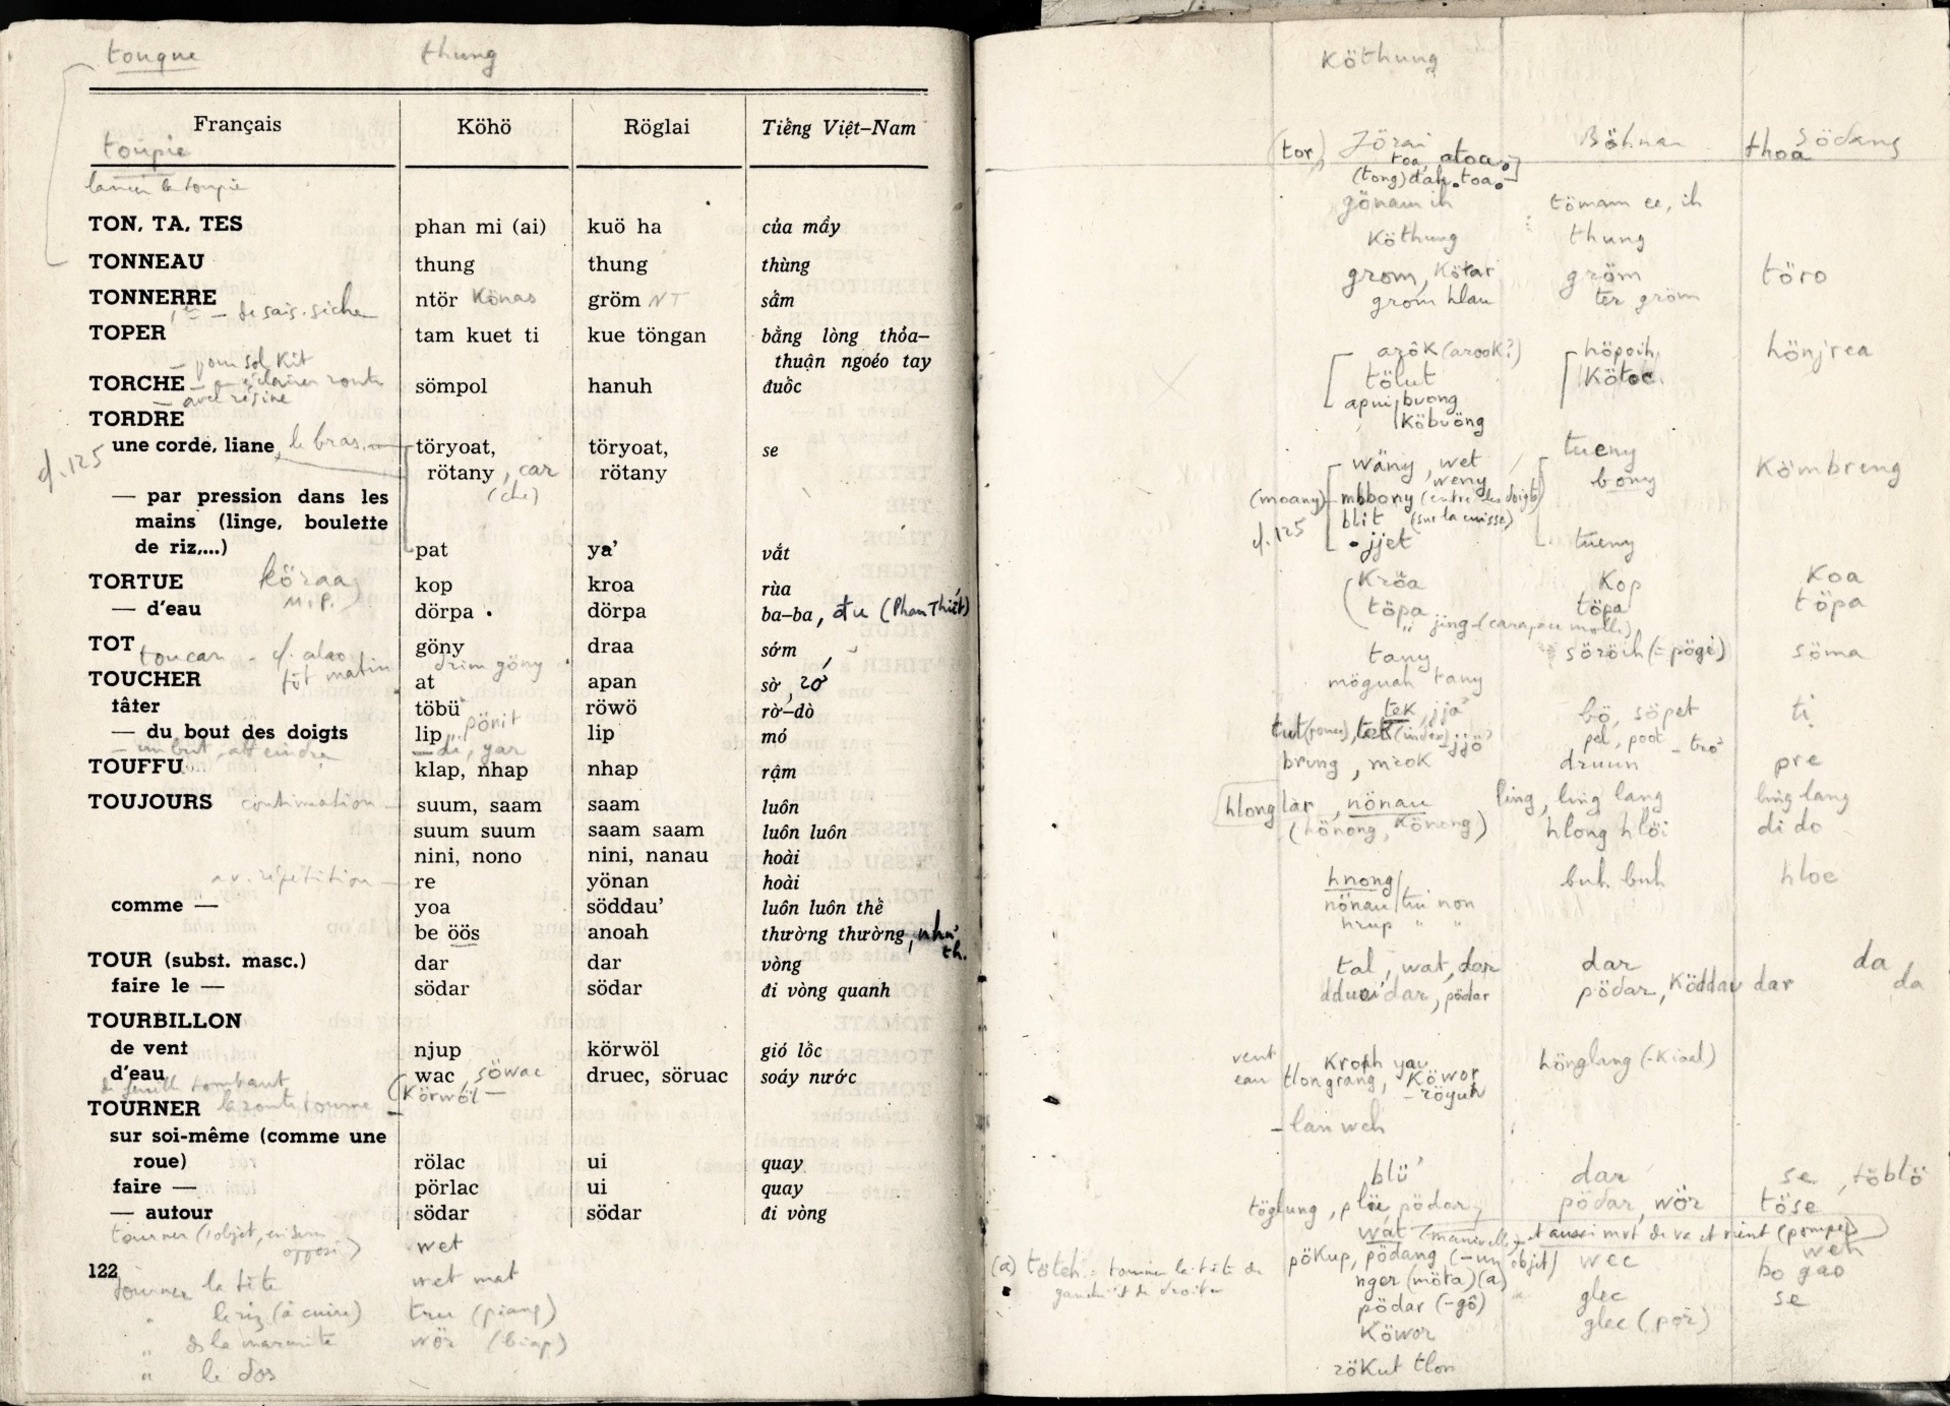 touque thung
Français Köhö Röglai Tiếng Việt-Nam
toupie
lancer la toupie
TON, TA, TES phan mi (ai) kuö ha của mầy
TONNEAU thung thung thùng
TONNERRE ntör Könas gröm NT sấm
TOPER tam kuet ti kue töngan bằng lòng thỏa-
thuận ngoéo tay
TORCHE sömpol hanuh đuốc
— avec résine
TORDRE
une corde, liane, le bras töryoat, töryoat, se
rötany, car rötany
— par pression dans les
mains (linge, boulette
de riz,...) pat ya' vắt
TORTUE köraa kop kroa rùa
— d'eau dörpa dörpa ba-ba, đu (Phan Thiết)
TOT göny draa sớm
toucan tôt matin drim göny
TOUCHER at apan sờ, rớ
tâter töbü röwö rờ-dò
— du bout des doigts lip pönit lip mó
— un but, atteindre — di, yar
TOUFFU klap, nhap nhap rậm
TOUJOURS continuation suum, saam saam luôn
suum suum saam saam luôn luôn
nini, nono nini, nanau hoài
av. répétition re yönan hoài
comme — yoa söddau' luôn luôn thế
be öös anoah thường thường, như
th.
TOUR (subst. masc.) dar dar vòng
faire le — södar södar đi vòng quanh
TOURBILLON
de vent njup körwöl gió lốc
d'eau wac, söwac druec, söruac soáy nước
TOURNER la route tourne Körwöl —
sur soi-même (comme une
roue) rölac ui quay
faire — pörlac ui quay
— autour södar södar đi vòng
tourner (l'objet, en sens wet
opposé)
122
tourner la tête wet mat
" le riz (à cuire) tru (piang)
" ds la marmite wör (biap)
" le dos
Köthung
(tor) Jörai Böhnar Södang
toa, atoa thoa
(tong) dah toa
gönam ih tömam ee, ih
Köthung thung
grom, Kötar gröm töro
grom hlau ter gröm
arôk (arook?) höpoih hönjrea
tölut Kötoc
apui buong
Köbuöng
wäny, wet tueny Kömbreng
weny bony
(moany) mbbony (entre les doigts)
cf. 125 blit (sur la cuisse)
jjet tueny
Kröa Kop Koa
töpa töpa töpa
" jing (carapace molle)
tany söröih (= pögê) söma
möguah tany
tek, jja' bö, söpet ti
tut (pouce), tek (index) -jjö pel, poot - tro'
brung, mrok druun pre
hlong lar, nönau ling, ling lang ling lang
(hönong, Könong) hlong hlöi di do
hnong buh buh hloe
nönau tui non
hrup " "
tal, wat, dar dar da
dduai dar, pödar pödar, Köddau dar da
vent Kroah yau hönglang (-kial)
eau tlongrang, Köwor
- röyuh
- lan weh
blü' dar se, töblö
töglung, plüe, pödar pödar, wör töse
wat (manivelle) et aussi mvt de va et vient (pompe)
pökup, pödang (- un objet) wec weh
(a) töteh = tourner la tête de nger (möta) (a) bo gao
gauche et de droite
pödar (-gô) glec se
Köwor glec (por)
rökut tlon